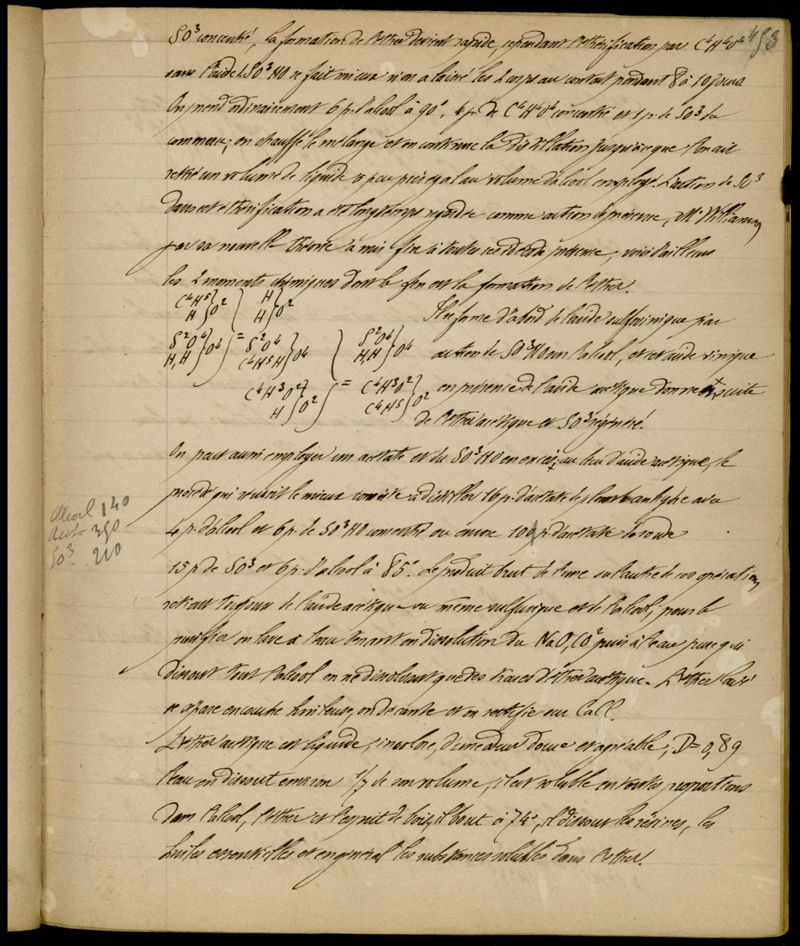 453
SO³ concentré, la formation de l'éther devient rapide, cependant l'éthérification par C⁴H⁴O⁴
sans l'aide de SO³HO se fait mieux si on a laissé les 2 corps au contact pendant 8 à 10 jours
On prend ordinairement 6 p. d'alcool à 90°, 4 p. de C⁴H⁴O⁴ concentré et 1 p. de SO³ du
commerce; on chauffe le mélange et on continue la distillation jusqu'à ce que l'on ait
retiré un volume de liquide à peu près égal au volume d'alcool employé. L'action de SO³
dans cet éthérification a été longtemps regardée comme action de présence, Mr Williamson
par sa nouvelle théorie a mis fin à toutes ces idées de présence, voici d'ailleurs
les 2 moments chimiques dont la fin est la formation de l'éther.
C⁴H⁵ } O² H } O²
H H
S²O⁴ } O⁴ = S²O⁴ } O⁴ S²O⁴ } O⁴
H,H C⁴H⁵H H,H
C⁴H³O² } O² = C⁴H³O² } O²
H C⁴H⁵
Il se forme d'abord de l'acide sulfovinique par
action de SO³HO sur l'alcool, et cet acide vinique
en présence de l'acide acétique donne ensuite
de l'éther acétique et SO³ régénéré.
On peut aussi employer un acétate et du SO³HO en excès, au lieu d'acide acétique, le
procédé qui réussit le mieux consiste à distiller 16 p. d'acétate de plomb anhydre avec
4 p. d'alcool et 6 p. de SO³HO concentré ou encore 10 p. d'acétate de soude
Alcool 140
Acét. 350
SO³ . 210
15 p. de SO³ et 6 p. d'alcool à 85°. Le produit brut de l'une ou l'autre de ces opérations
retient toujours de l'acide acétique ou même sulfurique et de l'alcool, pour le
purifier on lave à l'eau tenant en dissolution du NaO,CO² puis à l'eau pure qui
dissout tout l'alcool en ne dissolvant que des traces d'éther acétique. L'éther lavé
se sépare en couche huileuse, on décante et on rectifie sur CaCl.
L'éther acétique est liquide, incolore, d'une odeur douce et agréable, D = 0,89
l'eau en dissout environ 1/7 de son volume, il est soluble en toutes proportions
dans l'alcool, l'éther et l'esprit de bois, il bout à 74°, il dissout les résines, les
huiles essentielles et en général les substances solubles dans l'éther.